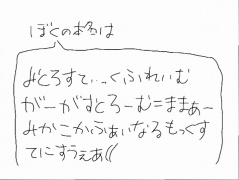 ぼくの本名は
みどろすてぃっくふれいむ
がーがすとろーむ=ままぁー
みかこかふぁいなるもっくす
てにすうぇあ((